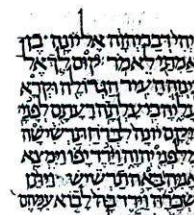 ויהי דבר יהוה אל יונה בן
אמתי לאמר קום לך אל
נינוה העיר הגדולה וקרא
עליה כי עלתה רעתם לפני
ויקם יונה לברח תרשישה
מלפני יהוה וירד יפו וימצא
אניה באה תרשיש ויתן
שכרה וירד בה לבוא עמהם